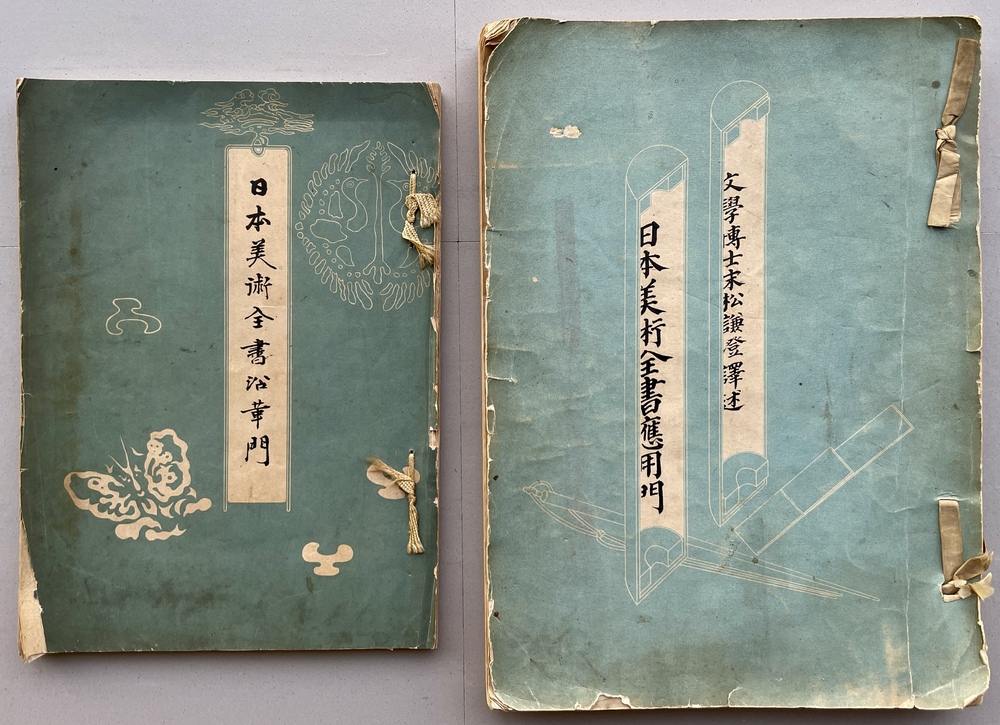 日本美術全書沿革門
文學博士末松謙澄譯述
日本美術全書應用門